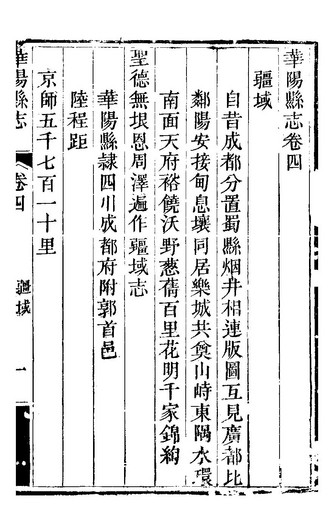 華陽縣志卷四
疆域
自昔成都分置蜀縣烟井相連版圖互見廣都比
鄰陽安接甸息壤同居樂城共奠山峙東隅水環
南面天府裕饒沃野葱蒨百里花明千家錦絢
聖德無垠恩周澤遍作疆域志
華陽縣隷四川成都府附郭首邑
陸程距
京師五千七百一十里
華陽縣志
卷四
疆域
一